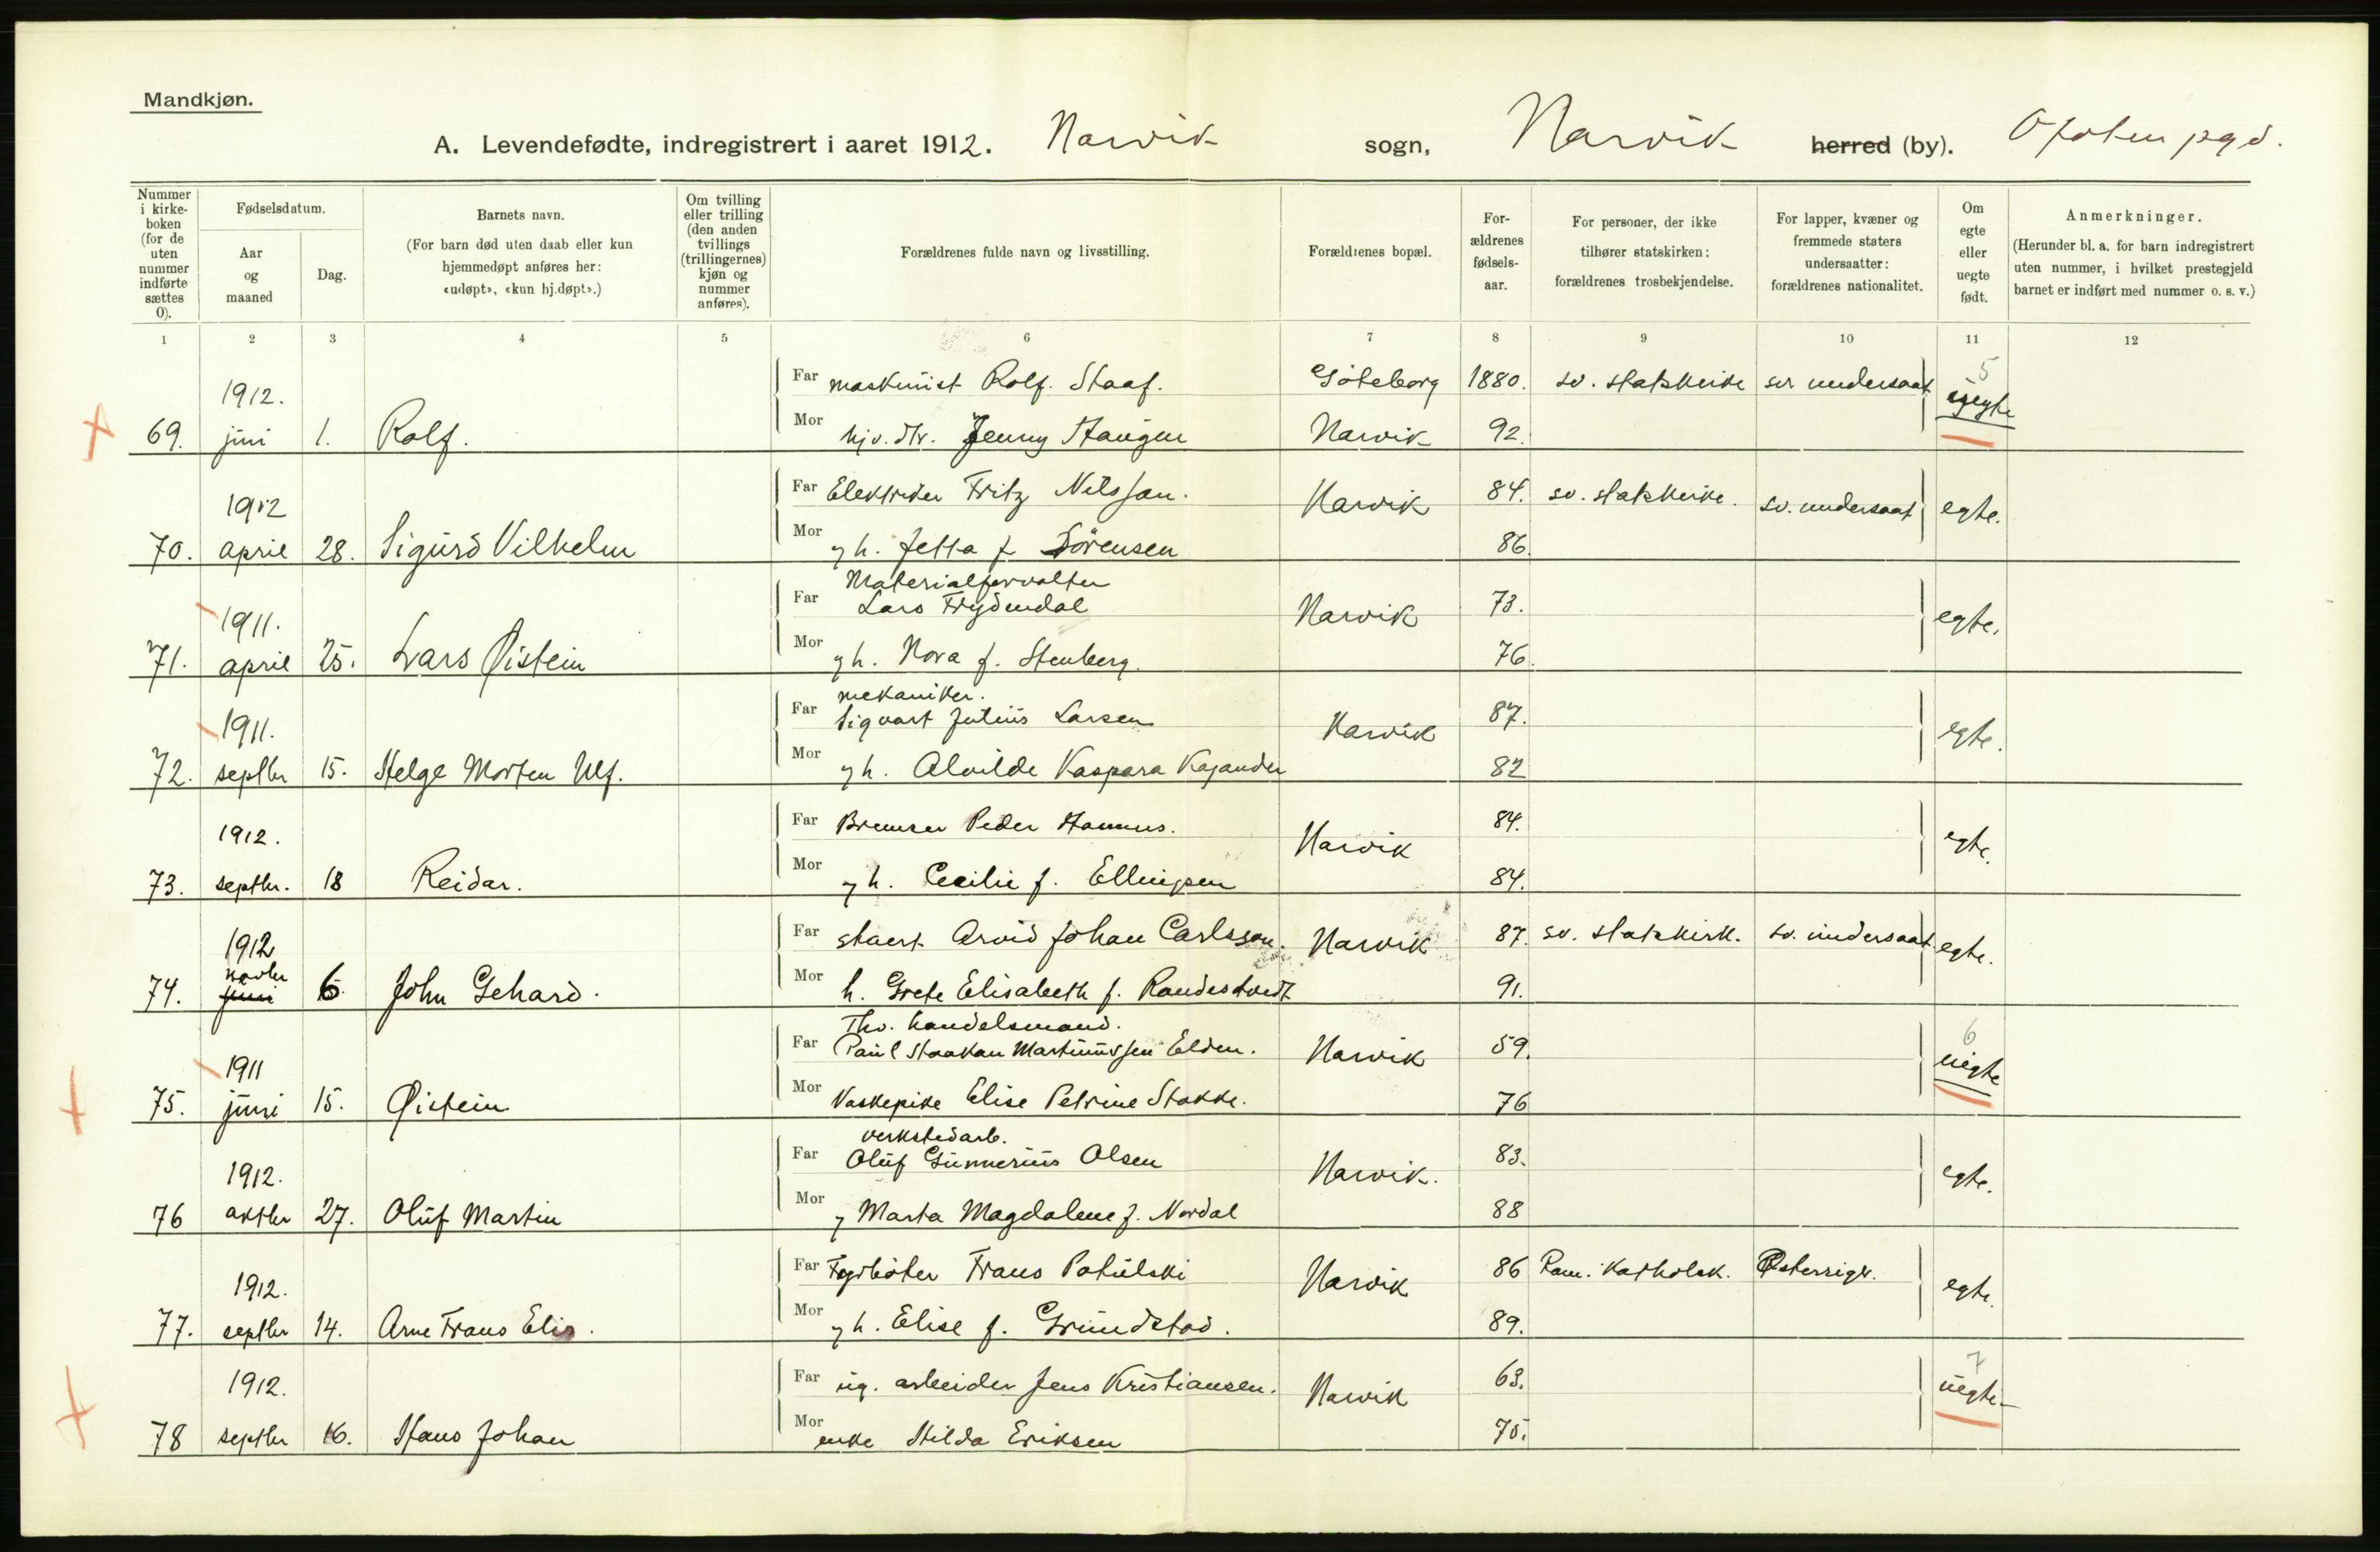 Mandkjøn.
A. Levendefødte, indregistrert i aaret 1912. Narvik sogn, Narvik herred (by). Ofoten pgd.
Nummer i kirke-boken (for de uten nummer indførte sættes 0).
Fødselsdatum.
Aar og maaned
Dag.
Barnets navn.
(For barn død uten daab eller kun hjemmedøpt anføres her: «udøpt», «kun hj.døpt».)
Om tvilling eller trilling (den anden tvillings (trillingernes) kjøn og nummer anføres).
Forældrenes fulde navn og livsstilling.
Forældrenes bopæl.
For-ældrenes fødsels-aar.
For personer, der ikke tilhører statskirken: forældrenes trosbekjendelse.
For lapper, kvæner og fremmede staters undersaatter: forældrenes nationalitet.
Om egte eller uegte født.
Anmerkninger.
(Herunder bl. a. for barn indregistrert uten nummer, i hvilket prestegjeld barnet er indført med nummer o. s. v.)
1 2 3 4 5 6 7 8 9 10 11 12
1912. Far maskinist Rolf. Staaf. Göteborg 1880. sv. statskirke sv undersaat 5 uegte
69. juni 1. Rolf. Mor hjv. dtr. Jenny Haugen Narvik 92.
1912 Far Elektriker Fritz Nilsson. Narvik 84. sv. statskirke. sv. undersaat egte.
70. april 28. Sigurd Vilhelm Mor og h. Jetta f. Sörensen 86.
Materialforvalter
1911. Far Lars Frydendal Narvik 73. egte.
71. april 25. Lars Øistein Mor og h. Nora f. Stenberg. 76.
mekaniker.
1911. Far Sigvart Julius Larsen Narvik 87. egte.
72. septbr 15. Helge Morten Ulf. Mor og h. Alvilde Kaspara Kajander 82
1912. Far Bremser Peder Hamnes. Narvik 84. egte.
73. septbr. 18 Reidar. Mor og h. Cecilie f. Ellingsen 84.
1912 Far Arvid Johan Carlsson. Narvik 87. sv. statskirk. sv. undersaat egte.
novbr
74. juni 6 John Gehard. Mor h. Grete Elisabeth f. Randestvedt 91.
Fhv. handelsmand.
1911 Far Paul Haakan Martinussen Elden. Narvik 59. 6 uegte
75. juni 15. Øistein Mor Vaskepike Elise Petrine Stokke. 76
verkstedarb.
1912. Far Oluf Gunnerius Olsen Narvik. 83. egte.
76 oktbr 27. Oluf Martin Mor og Marta Magdalene f. Nordal 88
1912. Far Fyrbøter Frans Potulski Narvik 86 Rom. Katholsk. Østerrigk. egte.
77. septbr 14. Arne Frans Elis. Mor og h. Elise f. Grundstad. 89.
1912. Far ug. arbeider Jens Kristiansen. Narvik 63. 7 uegte
78 septbr 16. Hans Johan Mor enke Hilda Eriksen 75.